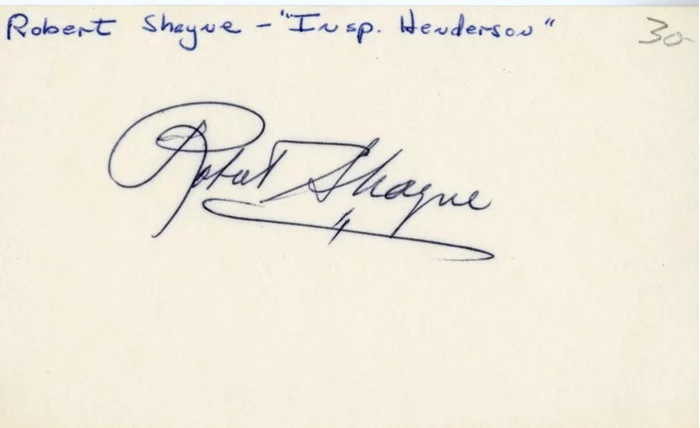 Robert Shayne - "Insp. Henderson"
30-
Robert Shayne